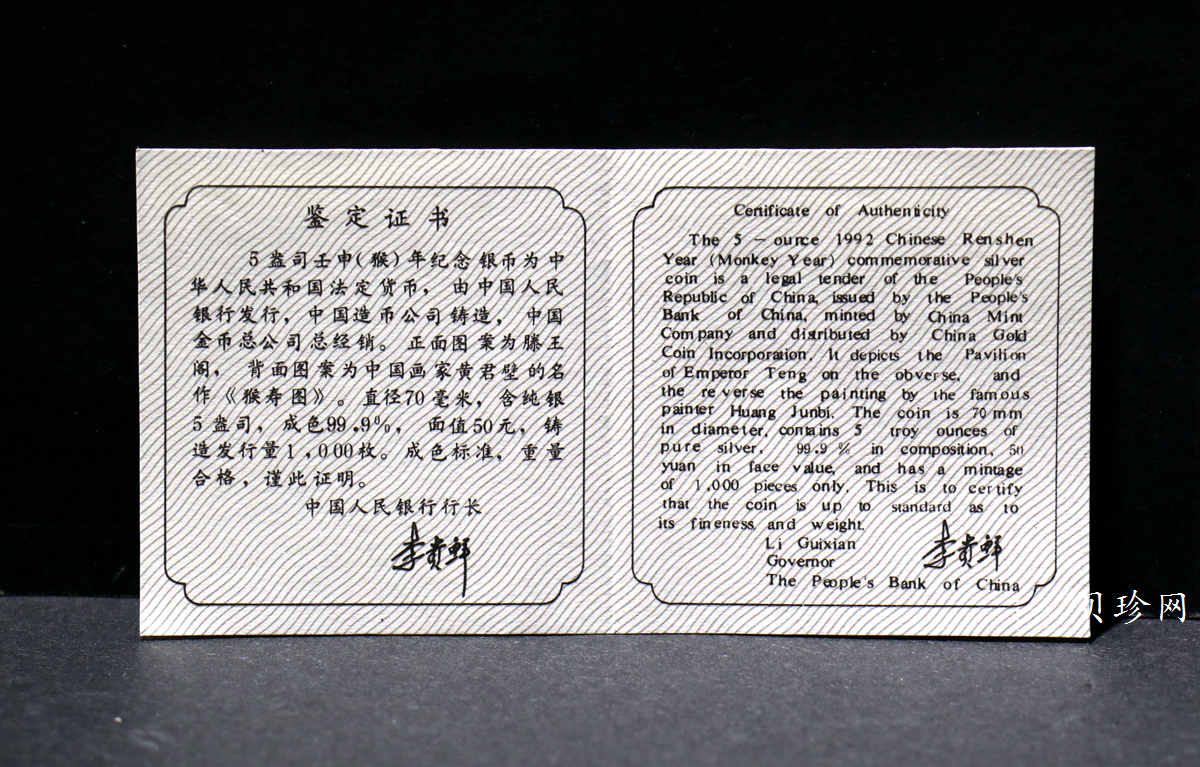 鉴定证书
5盎司壬申(猴)年纪念银币为中
华人民共和国法定货币, 由中国人民
银行发行, 中国造币公司铸造, 中国
金币总公司总经销。正面图案为滕王
阁, 背面图案为中国画家黄君璧的名
作《猴寿图》。直径70毫米, 含纯银
5盎司, 成色99.9%, 面值50元, 铸
造发行量1,000枚。成色标准, 重量
合格, 谨此证明。
中国人民银行行长
李贵鲜
Certificate of Authenticity
The 5-ounce 1992 Chinese Renshen
Year (Monkey Year) commemorative silver
coin is a legal tender of the People's
Republic of China, issued by the People's
Bank of China, minted by China Mint
Company and distributed by China Gold
Coin Incorporation. It depicts the Pavilion
of Emperor Teng on the obverse, and
the reverse the painting by the famous
painter Huang Junbi. The coin is 70mm
in diameter, contains 5 troy ounces of
pure silver, 99.9% in composition, 50
yuan in face value, and has a mintage
of 1,000 pieces only. This is to certify
that the coin is up to standard as to
its fineness and weight.
Li Guixian
李贵鲜
Governor
The People's Bank of China
贝珍网